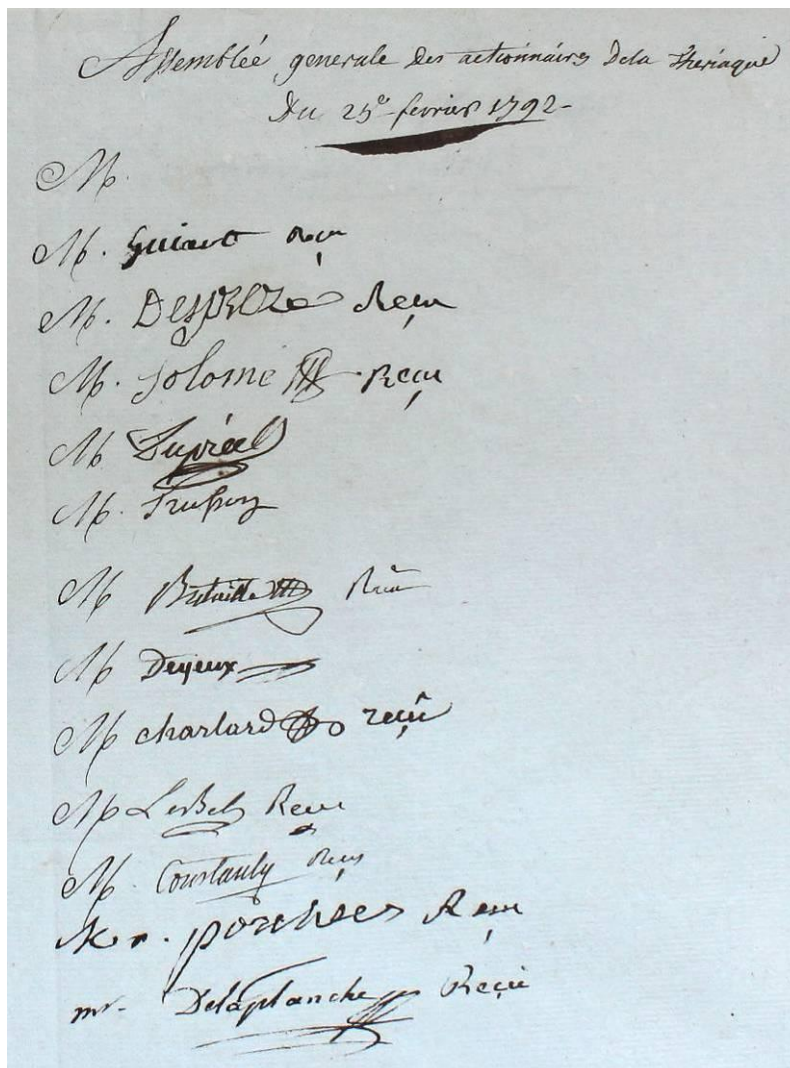 Assemblée generale des actionnaires dela theriaque
Du 25e fevrier 1792
M.
M. Guiart Reçu
M. Desprez Reçu
M. Solomé Reçu
M
M. Trusson
M Bataille Reçu
M Deyeux
M charlard reçû
M Reçu
M. Reçu
Mr. Reçu
mr. Delaplanche Reçu